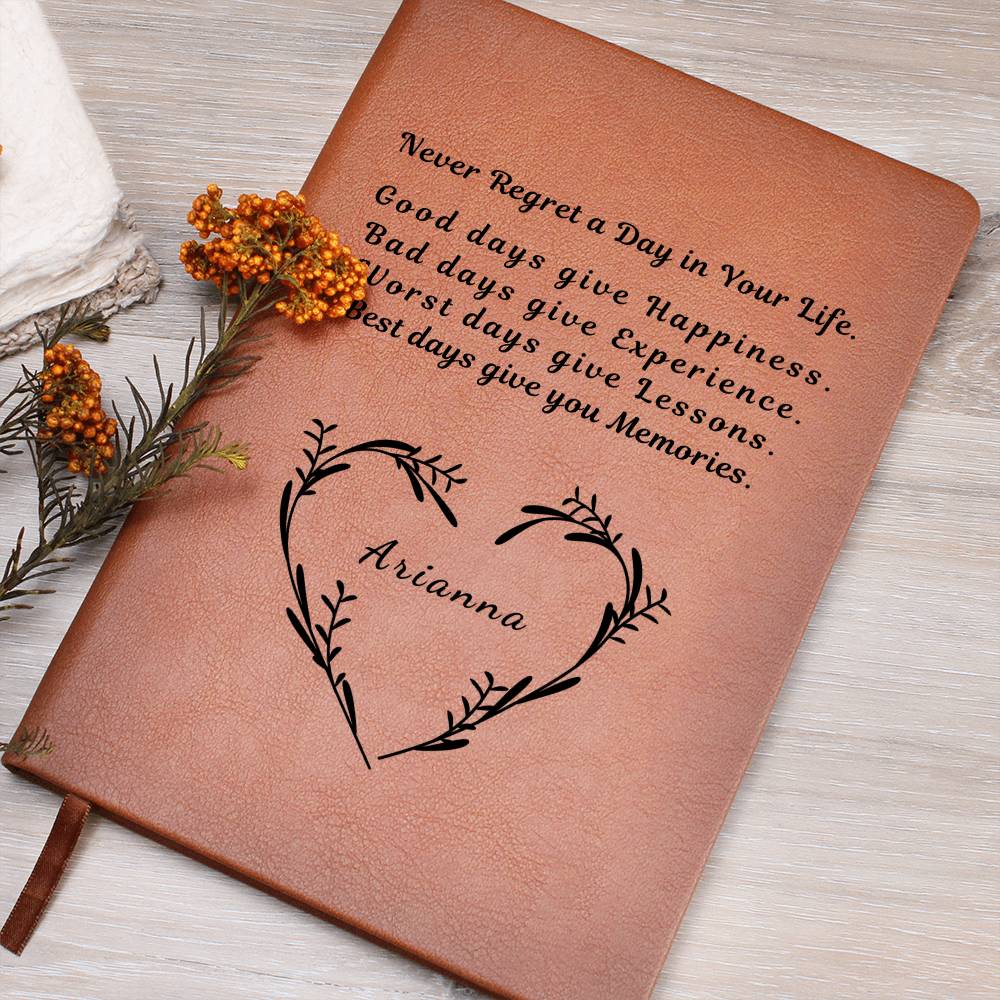 Never Regret a Day in Your Life.
Good days give Happiness.
Bad days give Experience.
Worst days give Lessons.
Best days give you Memories.
Arianna